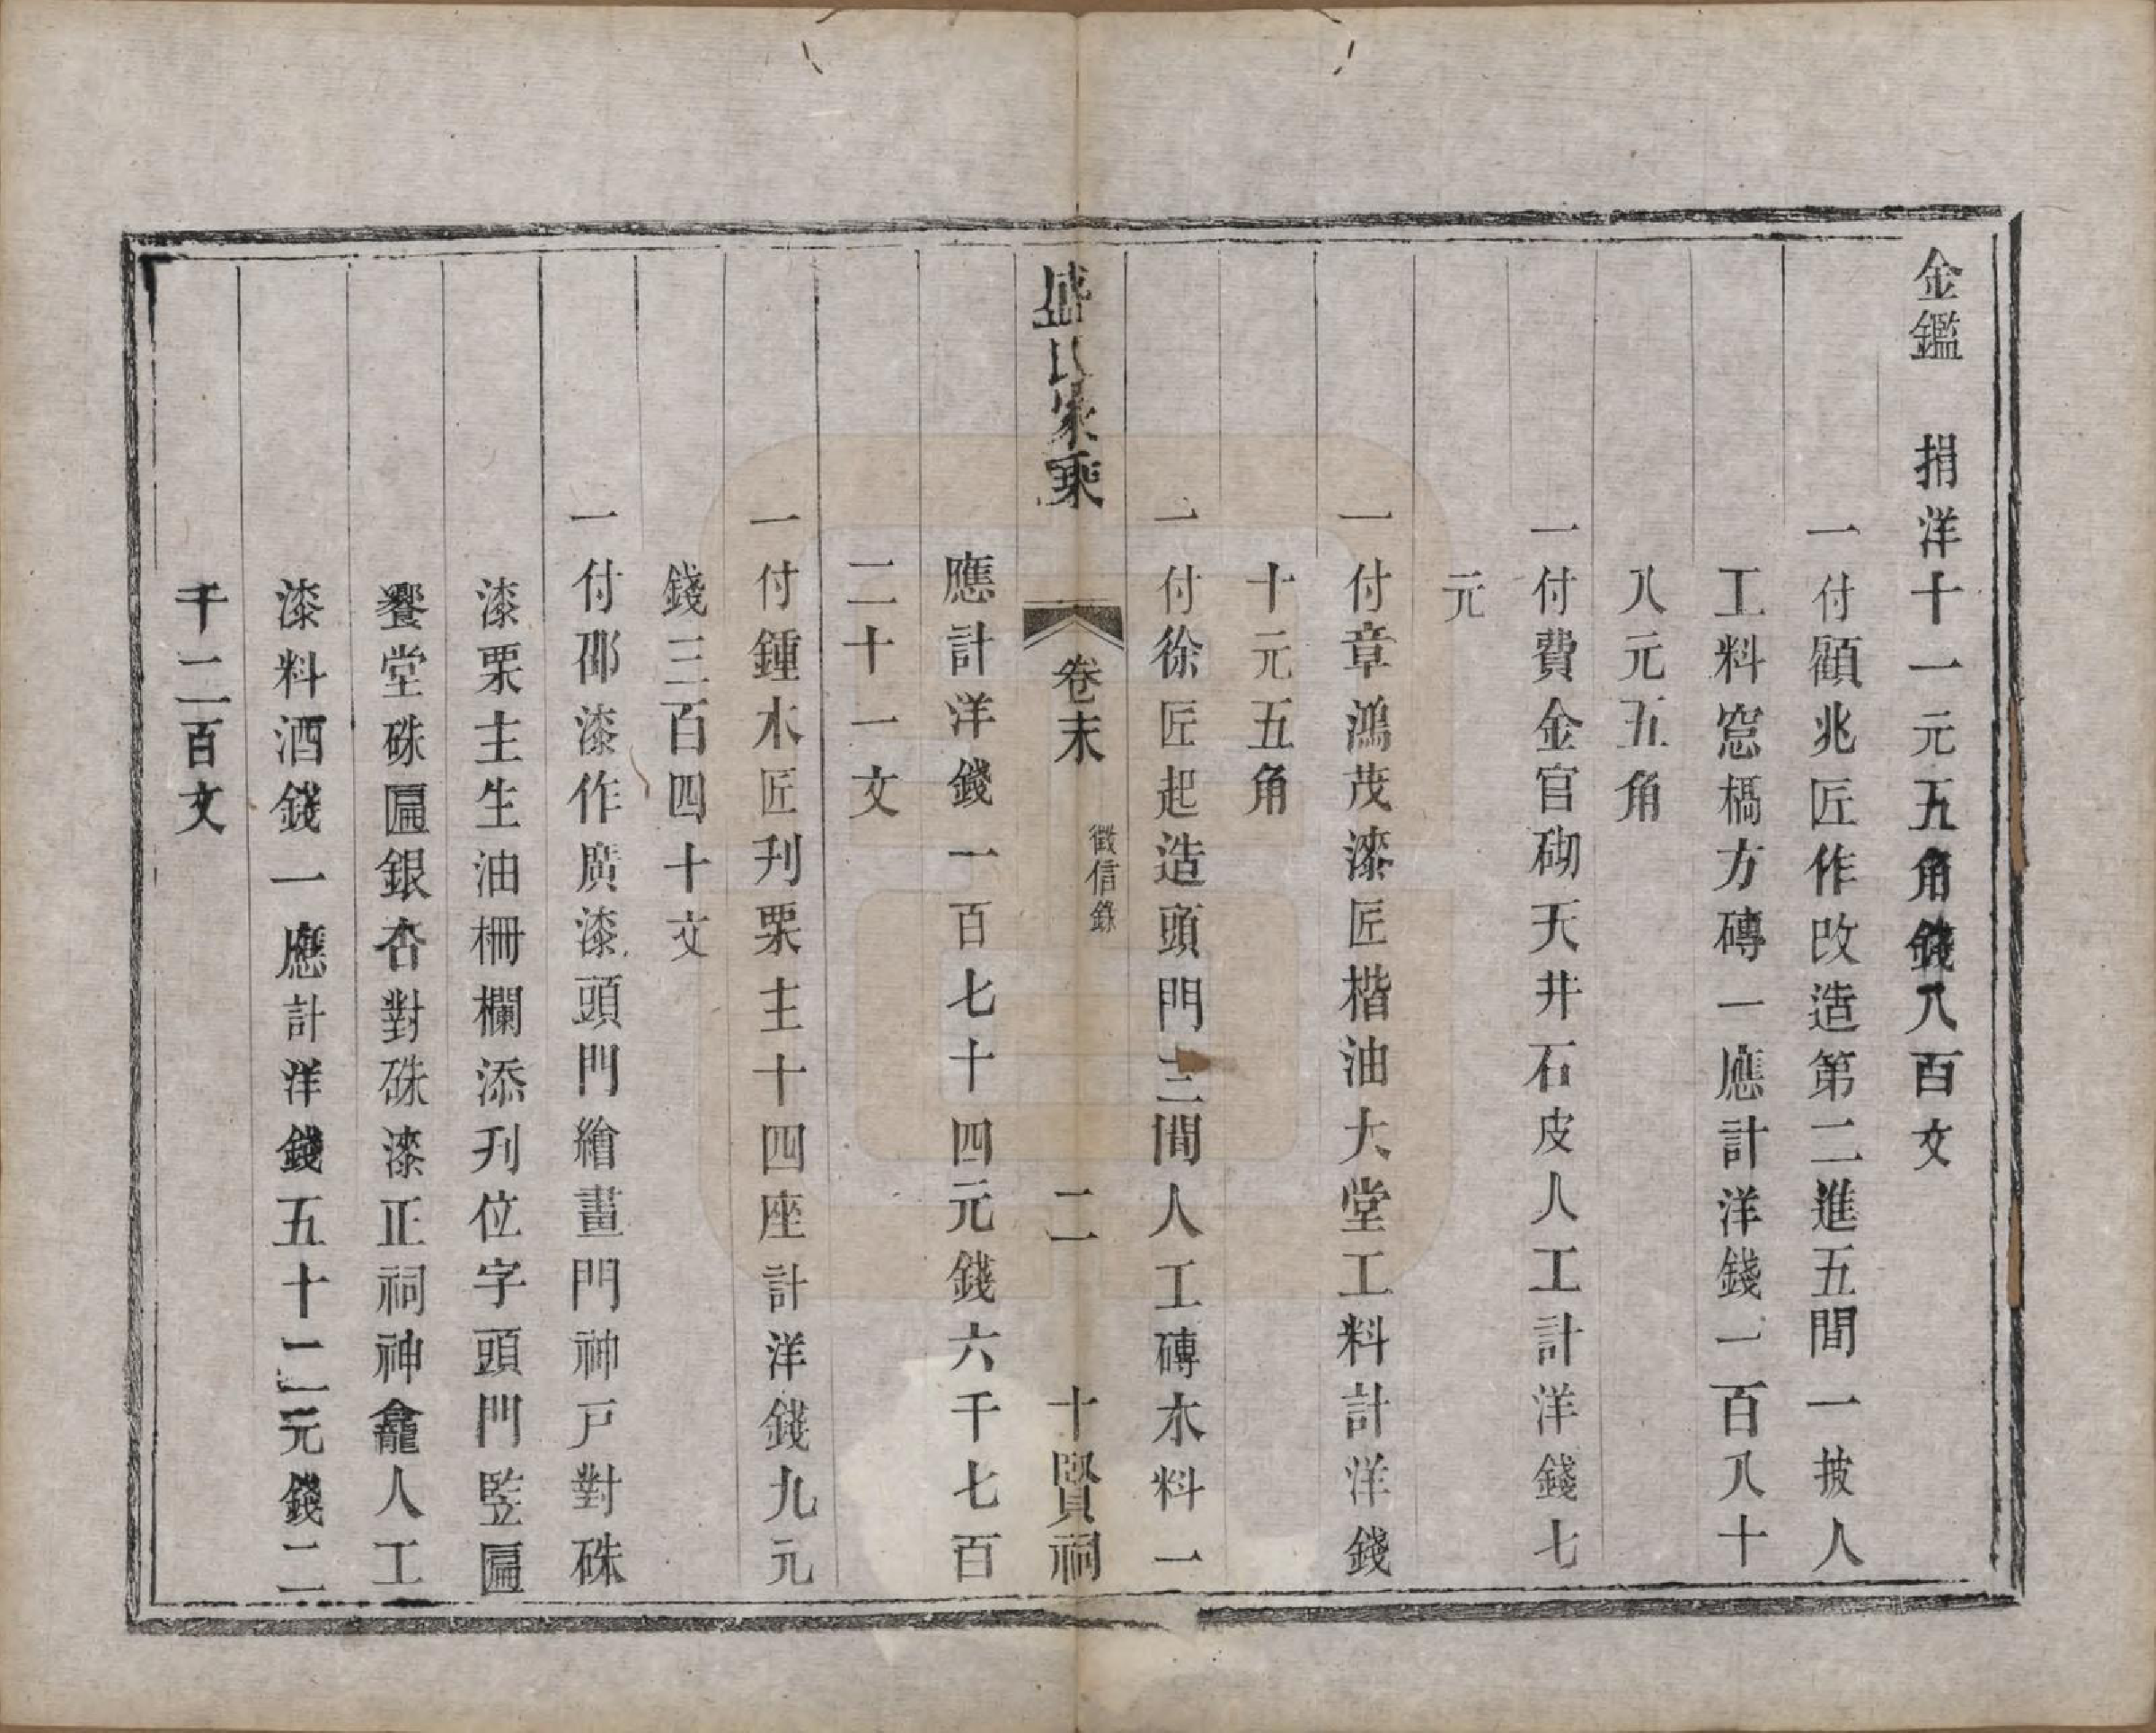 金鑑　捐洋十一元五角錢八百文
一付顧兆匠作改造第二進五間一披人
工料窓槅方磚一應計洋錢一百八十
八元五角
一付費金官砌天井石皮人工計洋錢七
元
一付章鴻茂漆匠楷油大堂工料計洋錢
十元五角
一付徐匠起造頭門三間人工磚木料一
盛氏家乘　卷末　徵信錄　二　十賢祠
應計洋錢一百七十四元錢六千七百
二十一文
一付鍾木匠刋栗主十四座計洋錢九元
錢三百四十文
一付邵漆作廣漆頭門繪畫門神戸對硃
漆栗主生油柵欄添刋位字頭門竪匾
饗堂硃匾銀杏對硃漆正祠神龕人工
漆料酒錢一應計洋錢五十二元錢二
千二百文